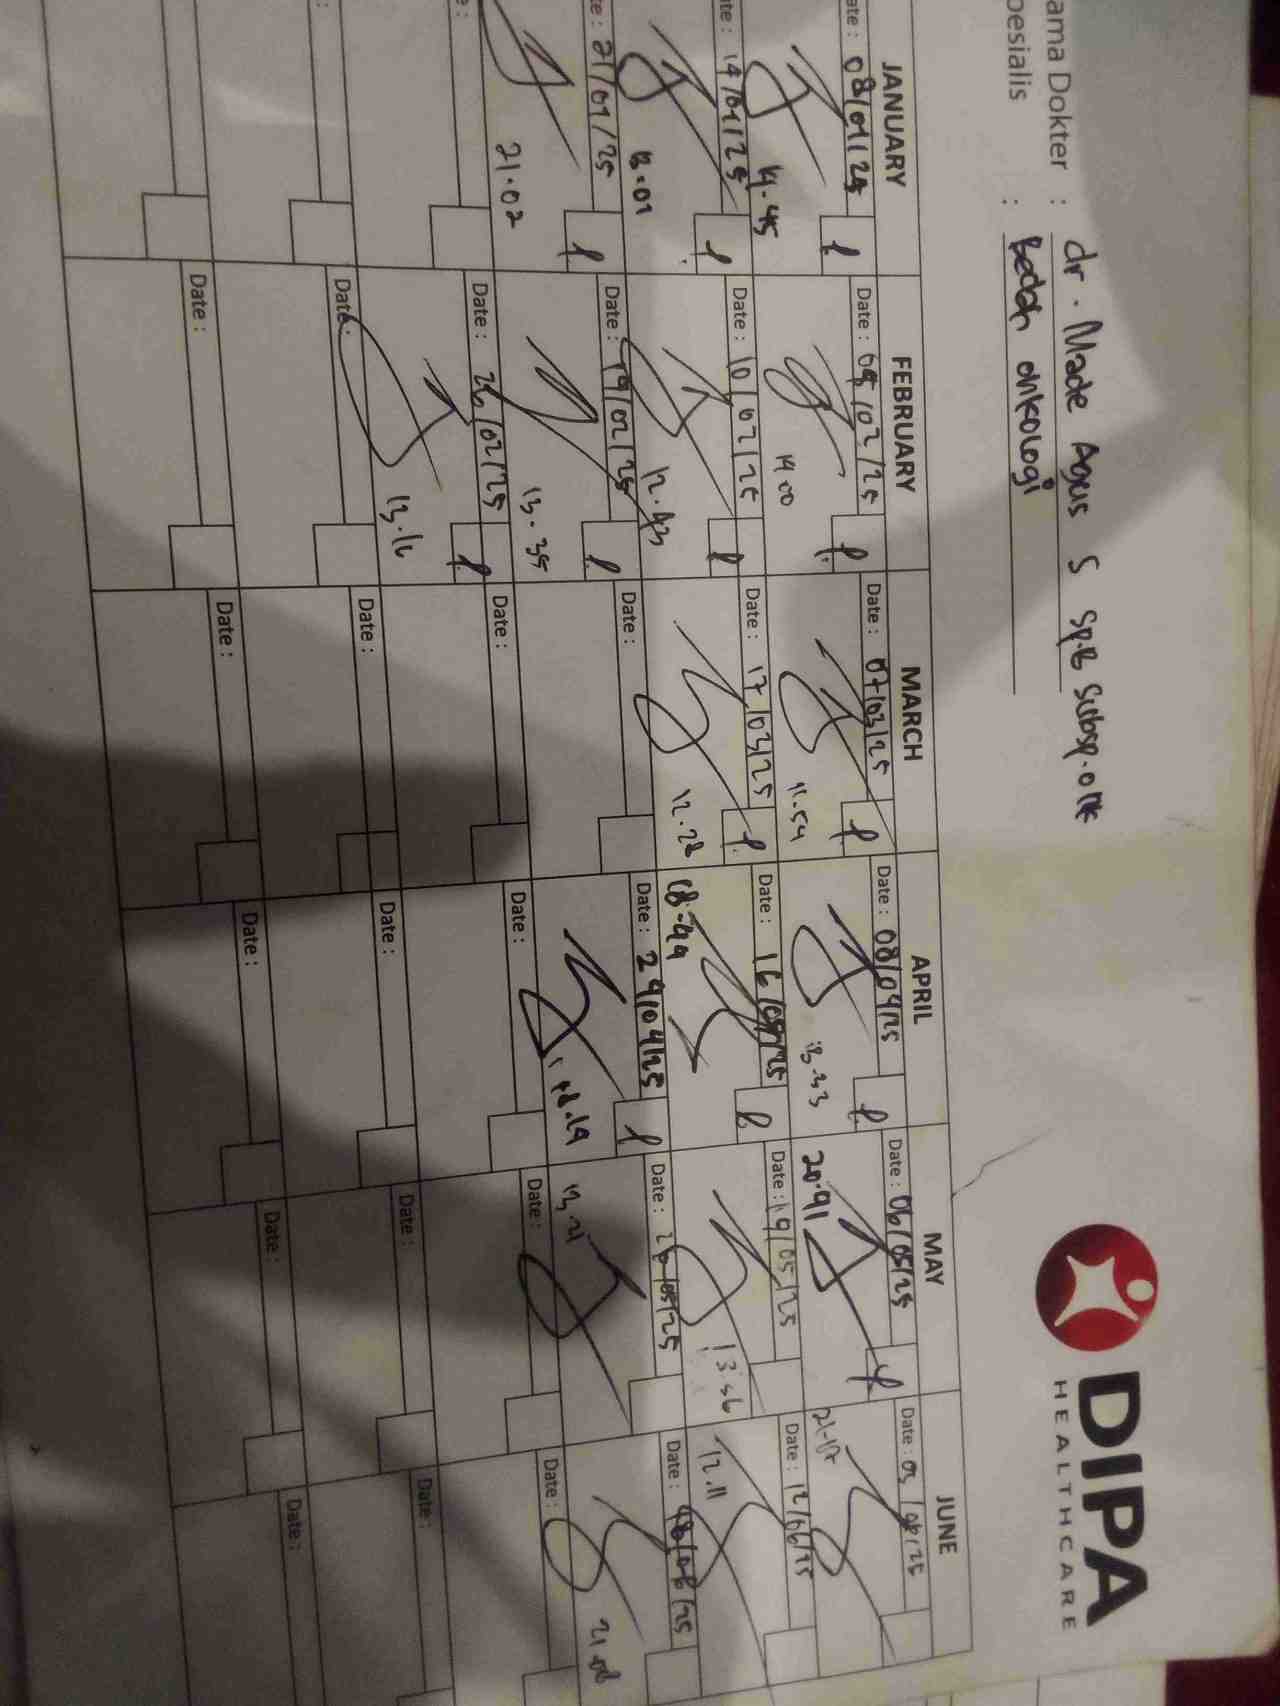 DIPA
HEALTHCARE
ama Dokter : dr. Made Agus S Sp.B Subsp.onk
pesialis : Bedah onkologi
JANUARY FEBRUARY MARCH APRIL MAY JUNE
ate : 08/01/25 Date : Date : 07/03/25 Date : 08/04/25 Date : 06/05/25 Date :
14.45 14 00 11.54 13.33 20.41
te : 14/01/25 Date : 10/02/25 Date : 17/03/25 Date : Date : 19/05/25 Date : 12/06/25
13.01 12.43 12.28 18.44 13.56 12.11
te : 21/01/25 Date : 19/02/25 Date : Date : 29/04/25 Date : 26/05/25 Date :
21.02 13.35 13.21 21.08
e : Date : 26/02/25 Date : Date : Date : Date :
13.16
: Date : Date : Date : Date : Date :
Date : Date : Date : Date : Date :